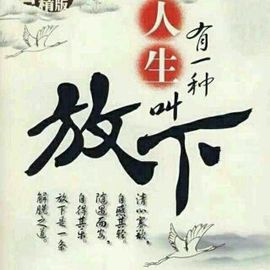 精版
人生
有一种叫
放下
清心寡欲,
随遇而安,
自得其乐
放下是一条
解脱之道。